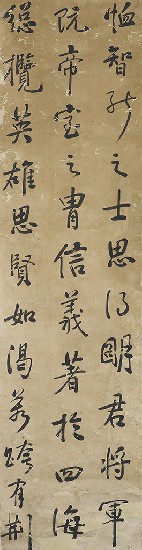 恤智能之士思得明君將軍
既帝室之胄信義著於四海
總攬英雄思賢如渴若跨有荊